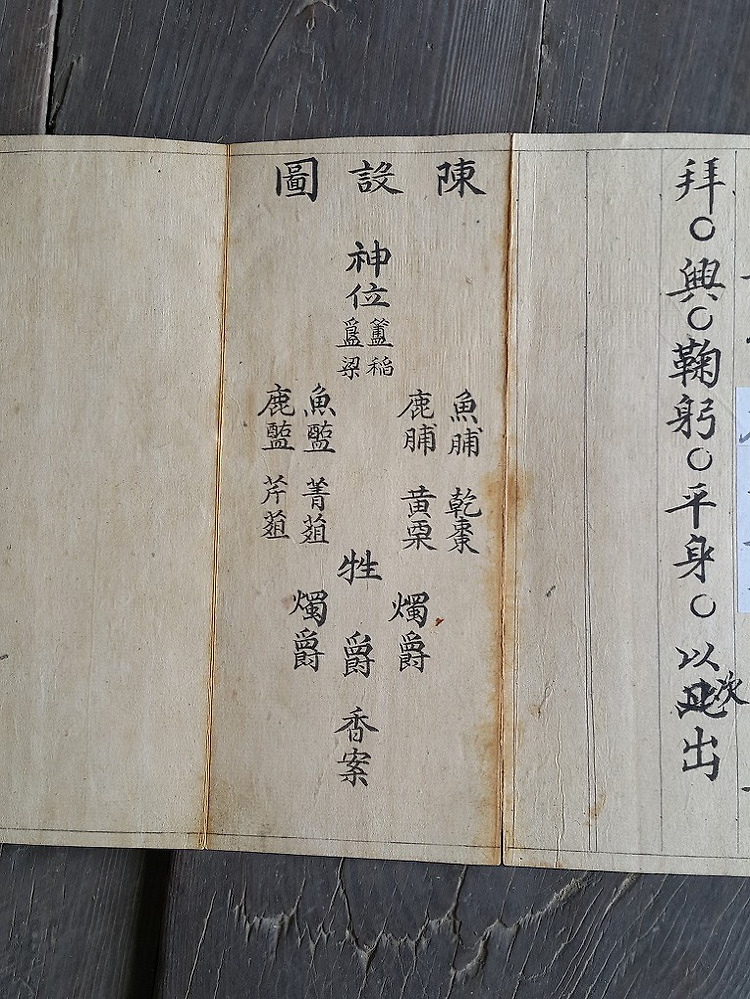 拜○興○鞠躬○平身○以次出
陳設圖
神位
簠稻
簋梁
魚脯 乾棗
鹿脯 黄栗
魚醢 菁菹
鹿醢 芹菹
牲
燭爵
爵
燭爵
香案